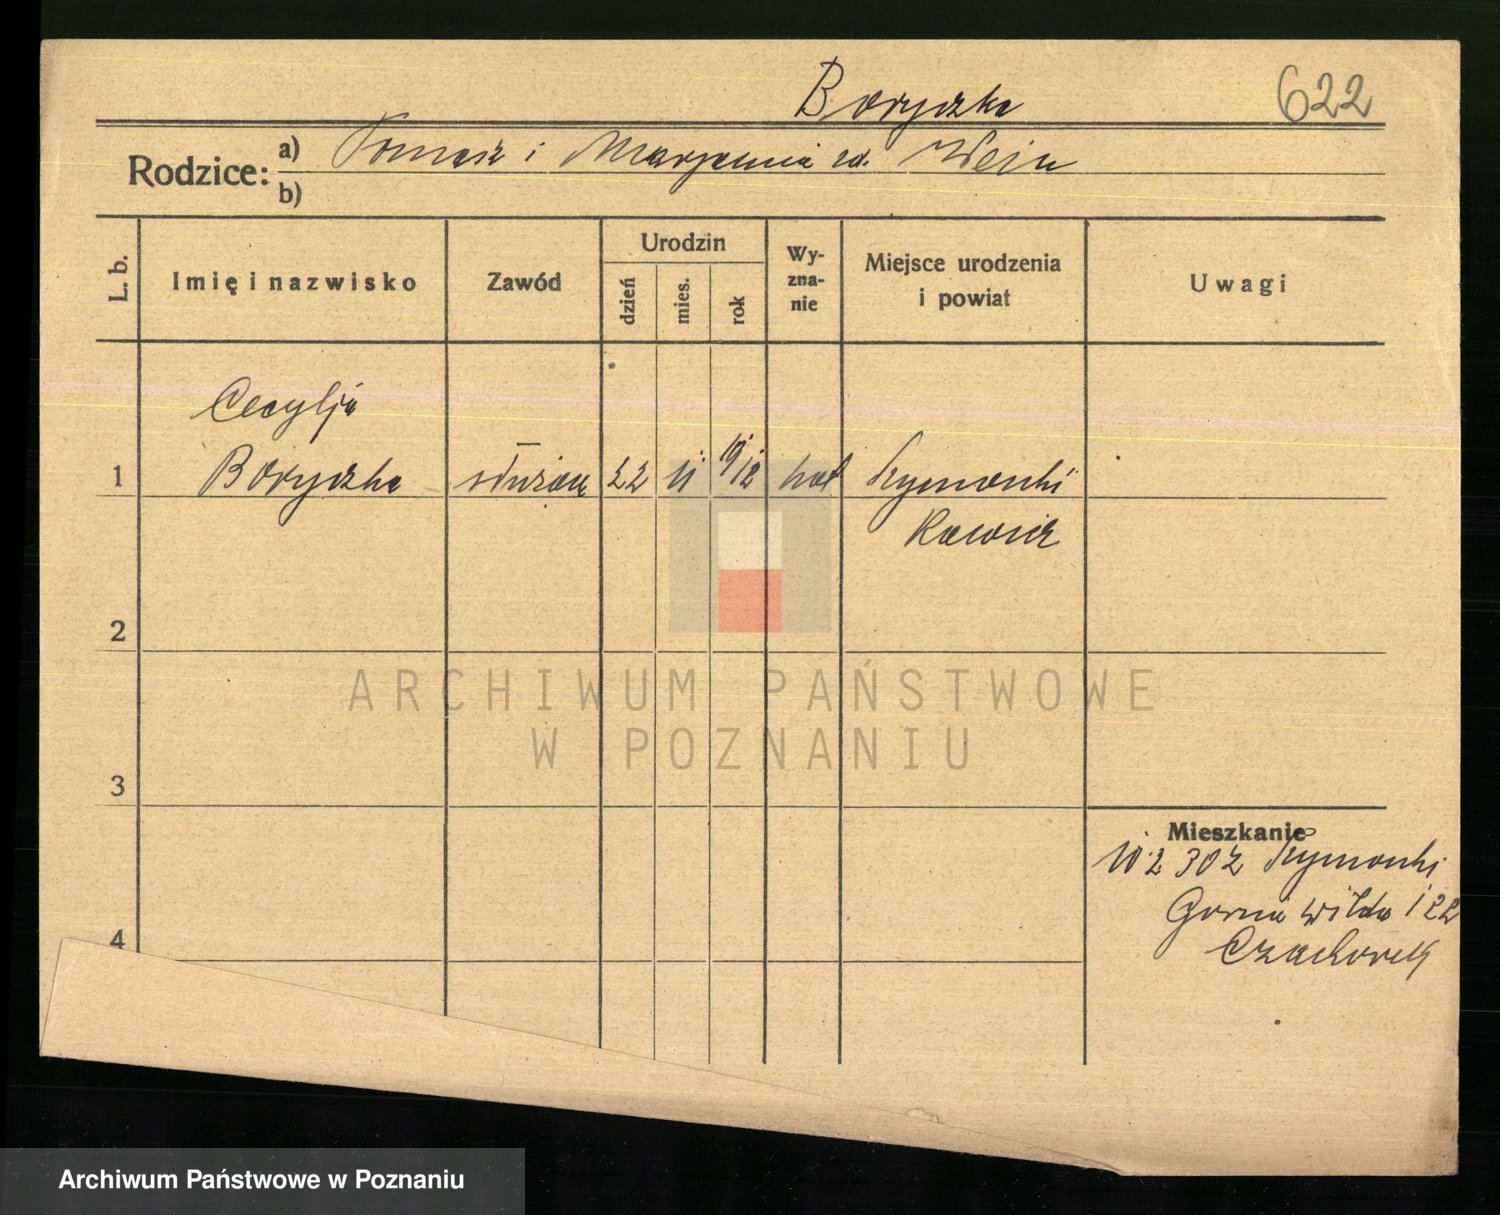 Boryczka
622
Rodzice: a) Tomasz i Marjanna zd. Wein
b)
L. b.
Imię i nazwisko
Zawód
Urodzin
dzień
mies.
rok
Wy-
zna-
nie
Miejsce urodzenia
i powiat
Uwagi
Cecylja
1 Boryczka służąc 22 11 1912 kat Szymonki
Rawicz
2
3
4
ARCHIWUM PAŃSTWOWE
W POZNANIU
Mieszkanie
2 30 z Szymonki
Gorna Wilda 122
Archiwum Państwowe w Poznaniu